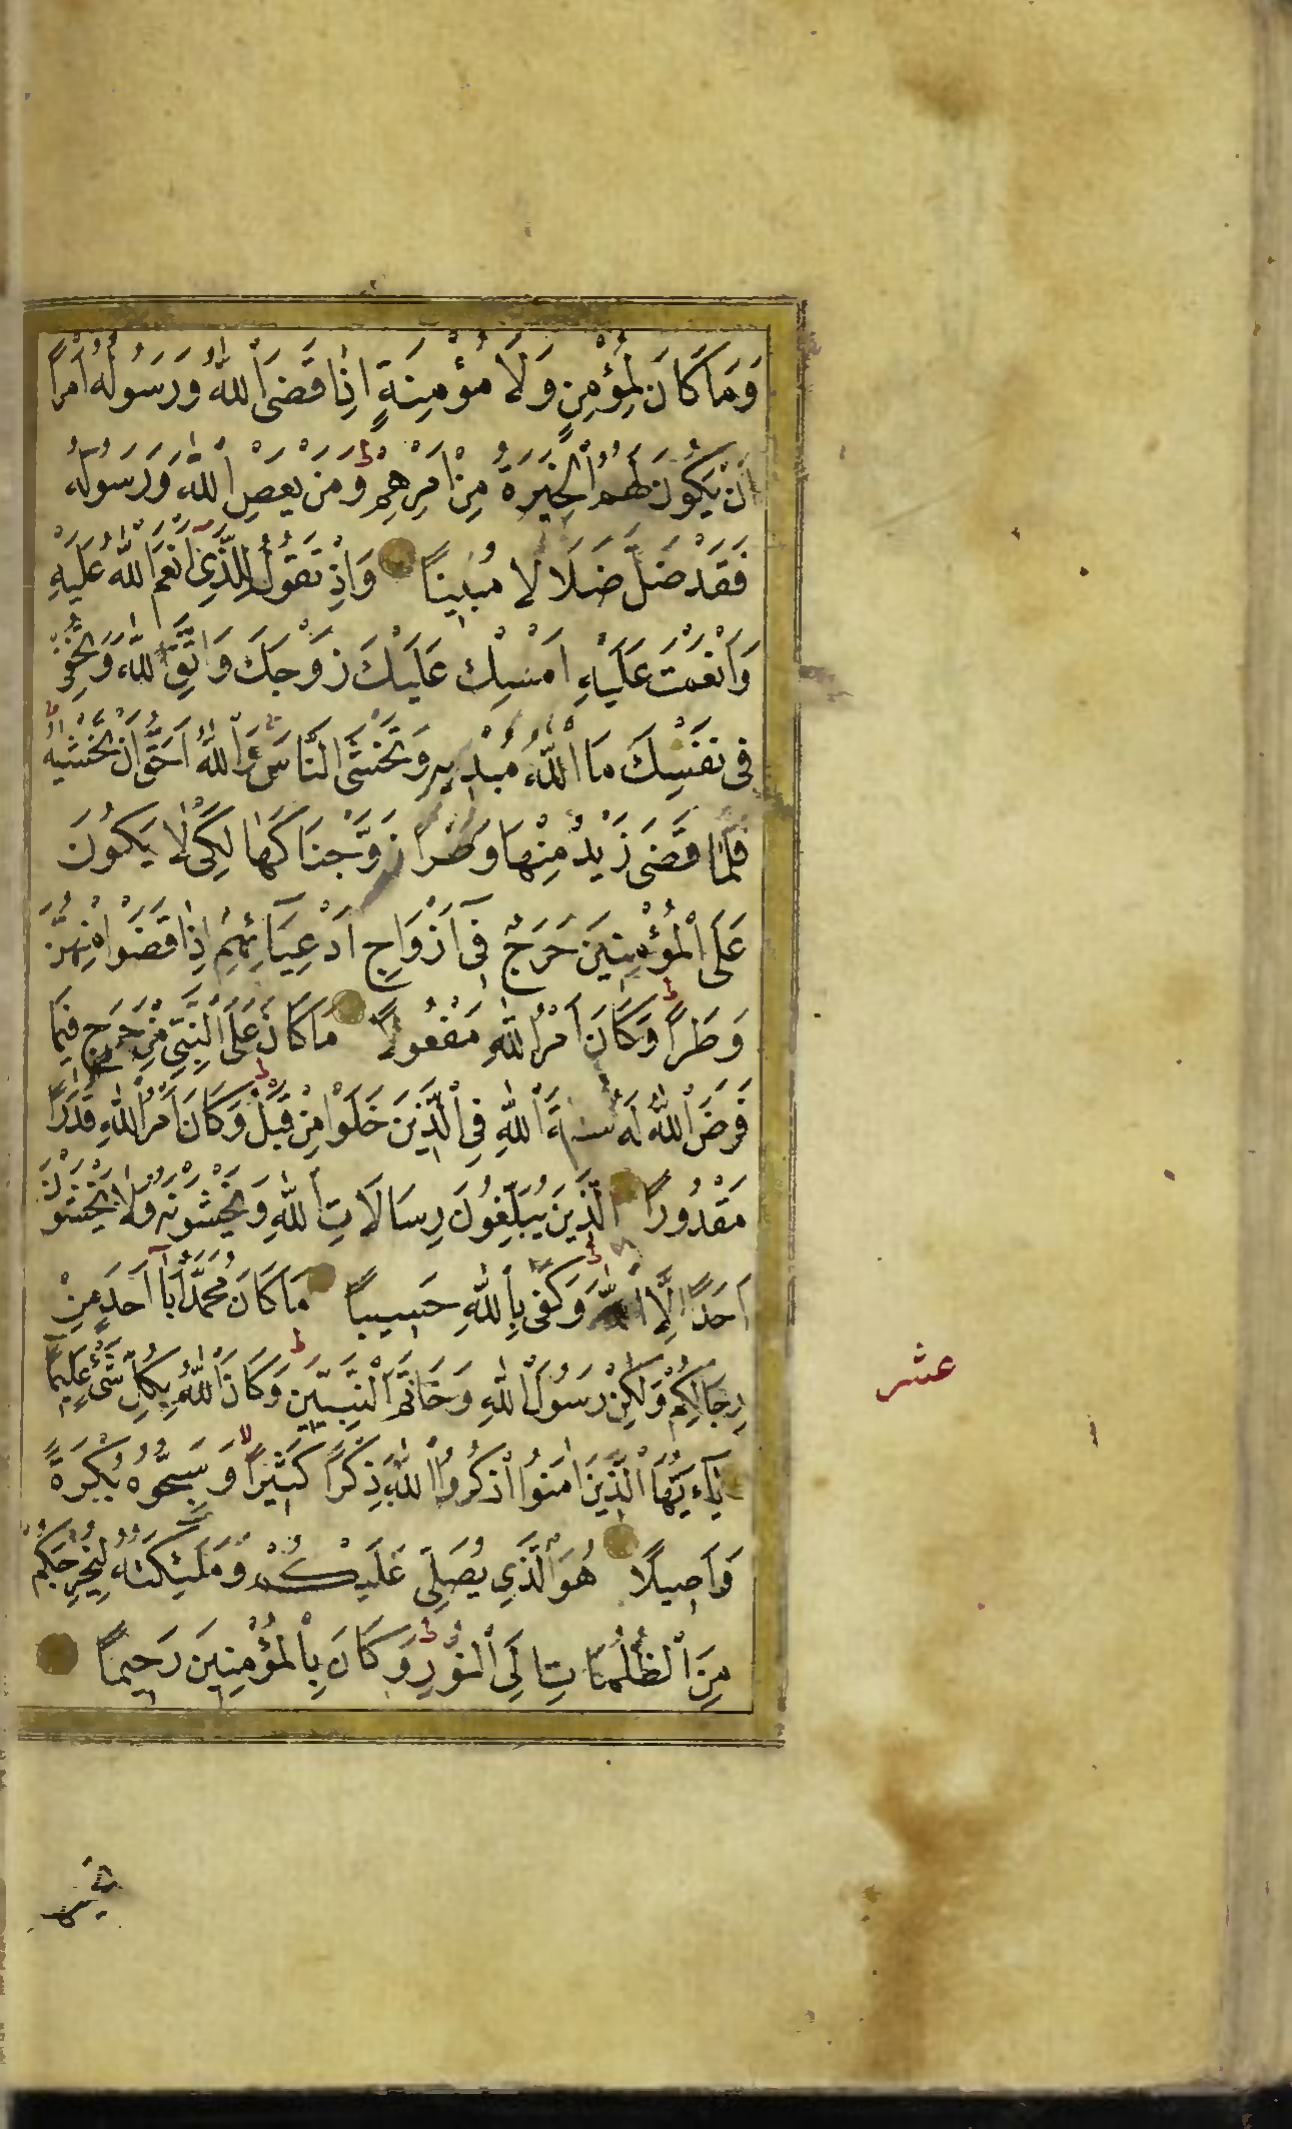 وَمَا كَانَ لِمُؤْمِنٍ وَلَا مُؤْمِنَةٍ اِذَا قَضَى اللّٰهُ وَرَسُولُهُ اَمْرًا
اَنْ يَكُونَ لَهُمُ الْخِيَرَةُ مِنْ اَمْرِهِمْ ط وَمَنْ يَعْصِ اللّٰهَ وَرَسُولَهُ
فَقَدْ ضَلَّ ضَلَالًا مُبِينًا وَاِذْ تَقُولُ لِلَّذِي اَنْعَمَ اللّٰهُ عَلَيْهِ
وَاَنْعَمْتَ عَلَيْهِ اَمْسِكْ عَلَيْكَ زَوْجَكَ وَاتَّقِ اللّٰهَ وَتُخْفِي
فِي نَفْسِكَ مَا اللّٰهُ مُبْدِيهِ وَتَخْشَى النَّاسَ ج وَاللّٰهُ اَحَقُّ اَنْ تَخْشٰيهُ ط
فَلَمَّا قَضَى زَيْدٌ مِنْهَا وَطَرًا زَوَّجْنَاكَهَا لِكَيْ لَا يَكُونَ
عَلَى الْمُؤْمِنِينَ حَرَجٌ فِي اَزْوَاجِ اَدْعِيَآئِهِمْ اِذَا قَضَوْا مِنْهُنَّ
وَطَرًا ط وَكَانَ اَمْرُ اللّٰهِ مَفْعُولًا مَا كَانَ عَلَى النَّبِيِّ مِنْ حَرَجٍ فِيمَا
فَرَضَ اللّٰهُ لَهُ سُنَّةَ اللّٰهِ فِي الَّذِينَ خَلَوْا مِنْ قَبْلُ ط وَكَانَ اَمْرُ اللّٰهِ قَدَرًا
مَقْدُورًا الَّذِينَ يُبَلِّغُونَ رِسَالَاتِ اللّٰهِ وَيَخْشَوْنَهُ وَلَا يَخْشَوْنَ
اَحَدًا اِلَّا اللّٰهَ ط وَكَفٰى بِاللّٰهِ حَسِيبًا مَا كَانَ مُحَمَّدٌ اَبَآ اَحَدٍ مِنْ
رِجَالِكُمْ وَلٰكِنْ رَسُولَ اللّٰهِ وَخَاتَمَ النَّبِيِّينَ ط وَكَانَ اللّٰهُ بِكُلِّ شَيْءٍ عَلِيمًا
يَآءَيُّهَا الَّذِينَ اٰمَنُوا اذْكُرُوا اللّٰهَ ذِكْرًا كَثِيرًا لا وَسَبِّحُوهُ بُكْرَةً
وَاَصِيلًا هُوَ الَّذِي يُصَلِّي عَلَيْكُمْ وَمَلٰئِكَتُهُ لِيُخْرِجَكُمْ
مِنَ الظُّلُمَاتِ اِلَى النُّورِ ط وَكَانَ بِالْمُؤْمِنِينَ رَحِيمًا
عشر